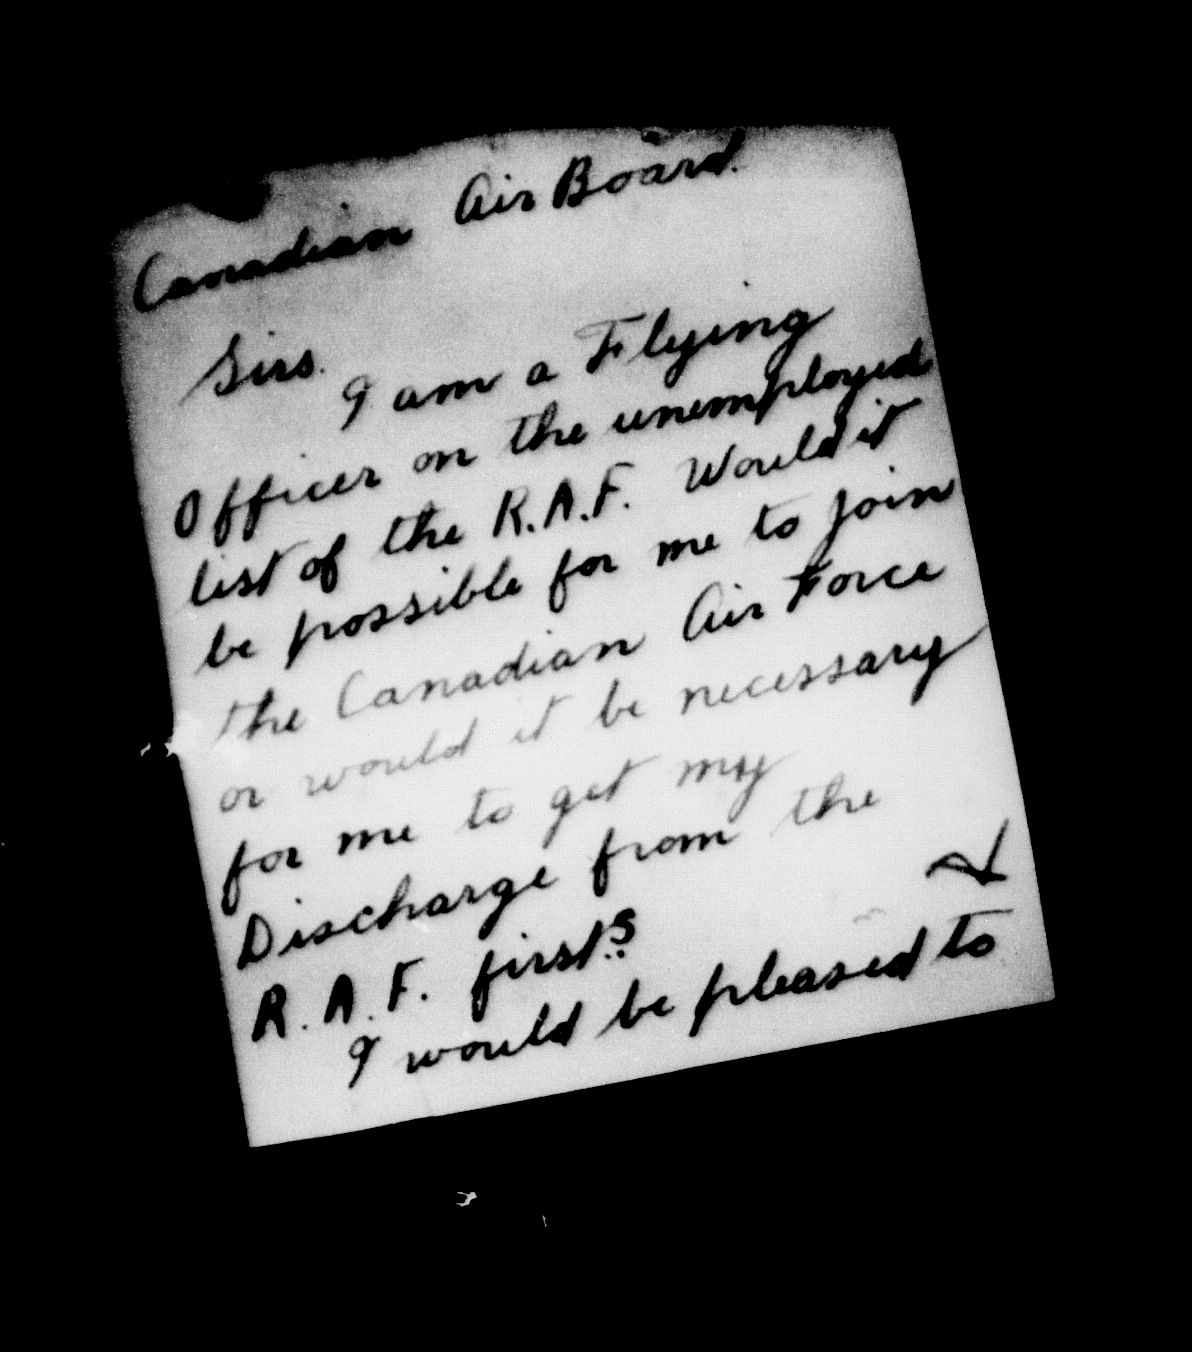 Canadian Air Board.
Sirs.
I am a Flying
Officer on the unemployed
list of the R.A.F. Would it
be possible for me to join
the Canadian Air Force
or would it be necessary
for me to get my
Discharge from the
R.A.F. first?
I would be pleased to